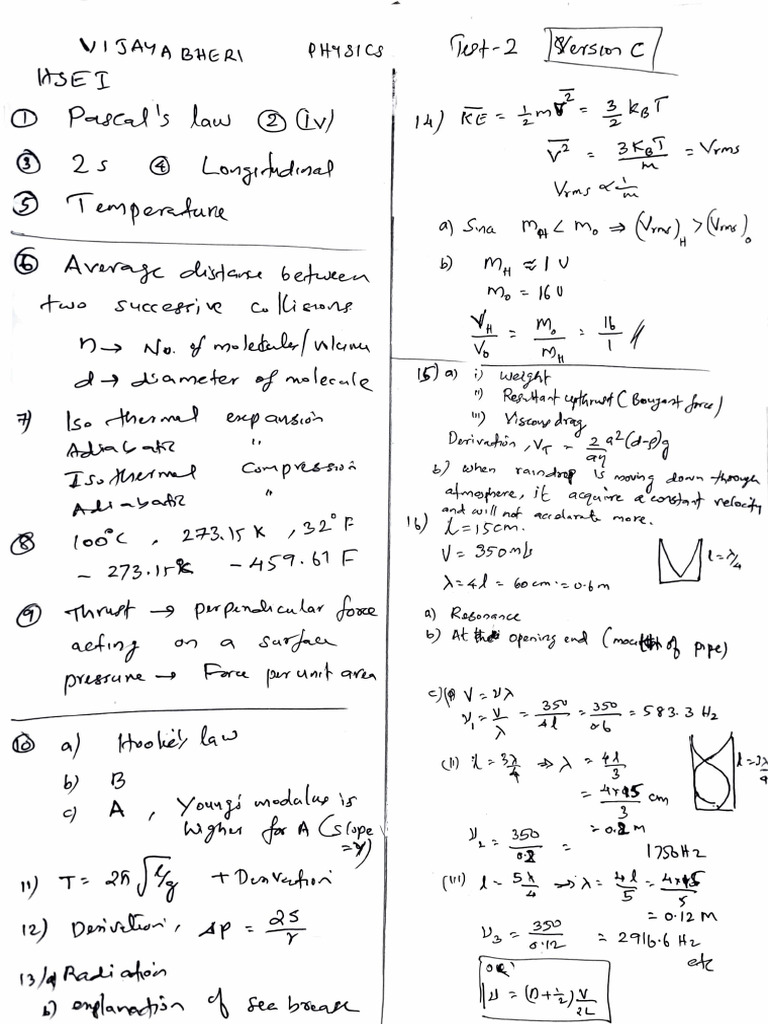 VIJAYABHERI PHYSICS Test-2 Version C
HSE I
① Pascal's law ② (iv)
③ 2s ④ Longitudinal
⑤ Temperature
⑥ Average distance between
two successive collisions
n → No. of molecules/volume
d → diameter of molecule
7) Isothermal expansion
Adiabatic "
Isothermal compression
Adiabatic "
⑧ 100°C , 273.15 K , 32°F
- 273.15 - 459.67 F
⑨ Thrust → perpendicular force
acting on a surface
pressure → Force per unit area
⑩ a) Hooke's law
b) B
c) A , Young's modulus is
higher for A (slope
=Y)
11) T = 2π√l/g + Derivation
12) Derivation, ΔP = 2S/r
13) a) Radiation
b) explanation of sea breeze
14) K̅E̅ = 1/2 m v̅² = 3/2 k_B T
v̅² = 3K_BT/m = Vrms
Vrms ∝ 1/m
a) Sina m_H < m_o ⇒ (Vrms)_H > (Vrms)_o
b) m_H ≈ 1 U
m_o = 16 U
V_H/V_o = m_o/m_H = 16/1 //
15) a) i) weight
ii) Resultant upthrust (Bouyant force)
iii) Viscous drag
Derivation, V_T = 2/9η a²(d-ρ)g
b) when raindrop is moving down through
atmosphere, it acquire a constant velocity
and will not accelarate more.
16) l = 15 cm.
V = 350 m/s
l = λ/4
λ = 4l = 60 cm = 0.6 m
a) Resonance
b) At the opening end (mouth of pipe)
c) (i) V = νλ
ν₁ = V/λ = 350/4l = 350/0.6 = 583.3 Hz
(ii) l = 3λ/4 ⇒ λ = 4l/3
l = 3λ/4
= 4×15/3 cm
= 0.2 m
ν₂ = 350/0.2 = 1750 Hz
(iii) l = 5λ/4 ⇒ λ = 4l/5 = 4×15/5
= 0.12 m
ν₃ = 350/0.12 = 2916.6 Hz
etc
or
ν = (n+1/2) V/2L